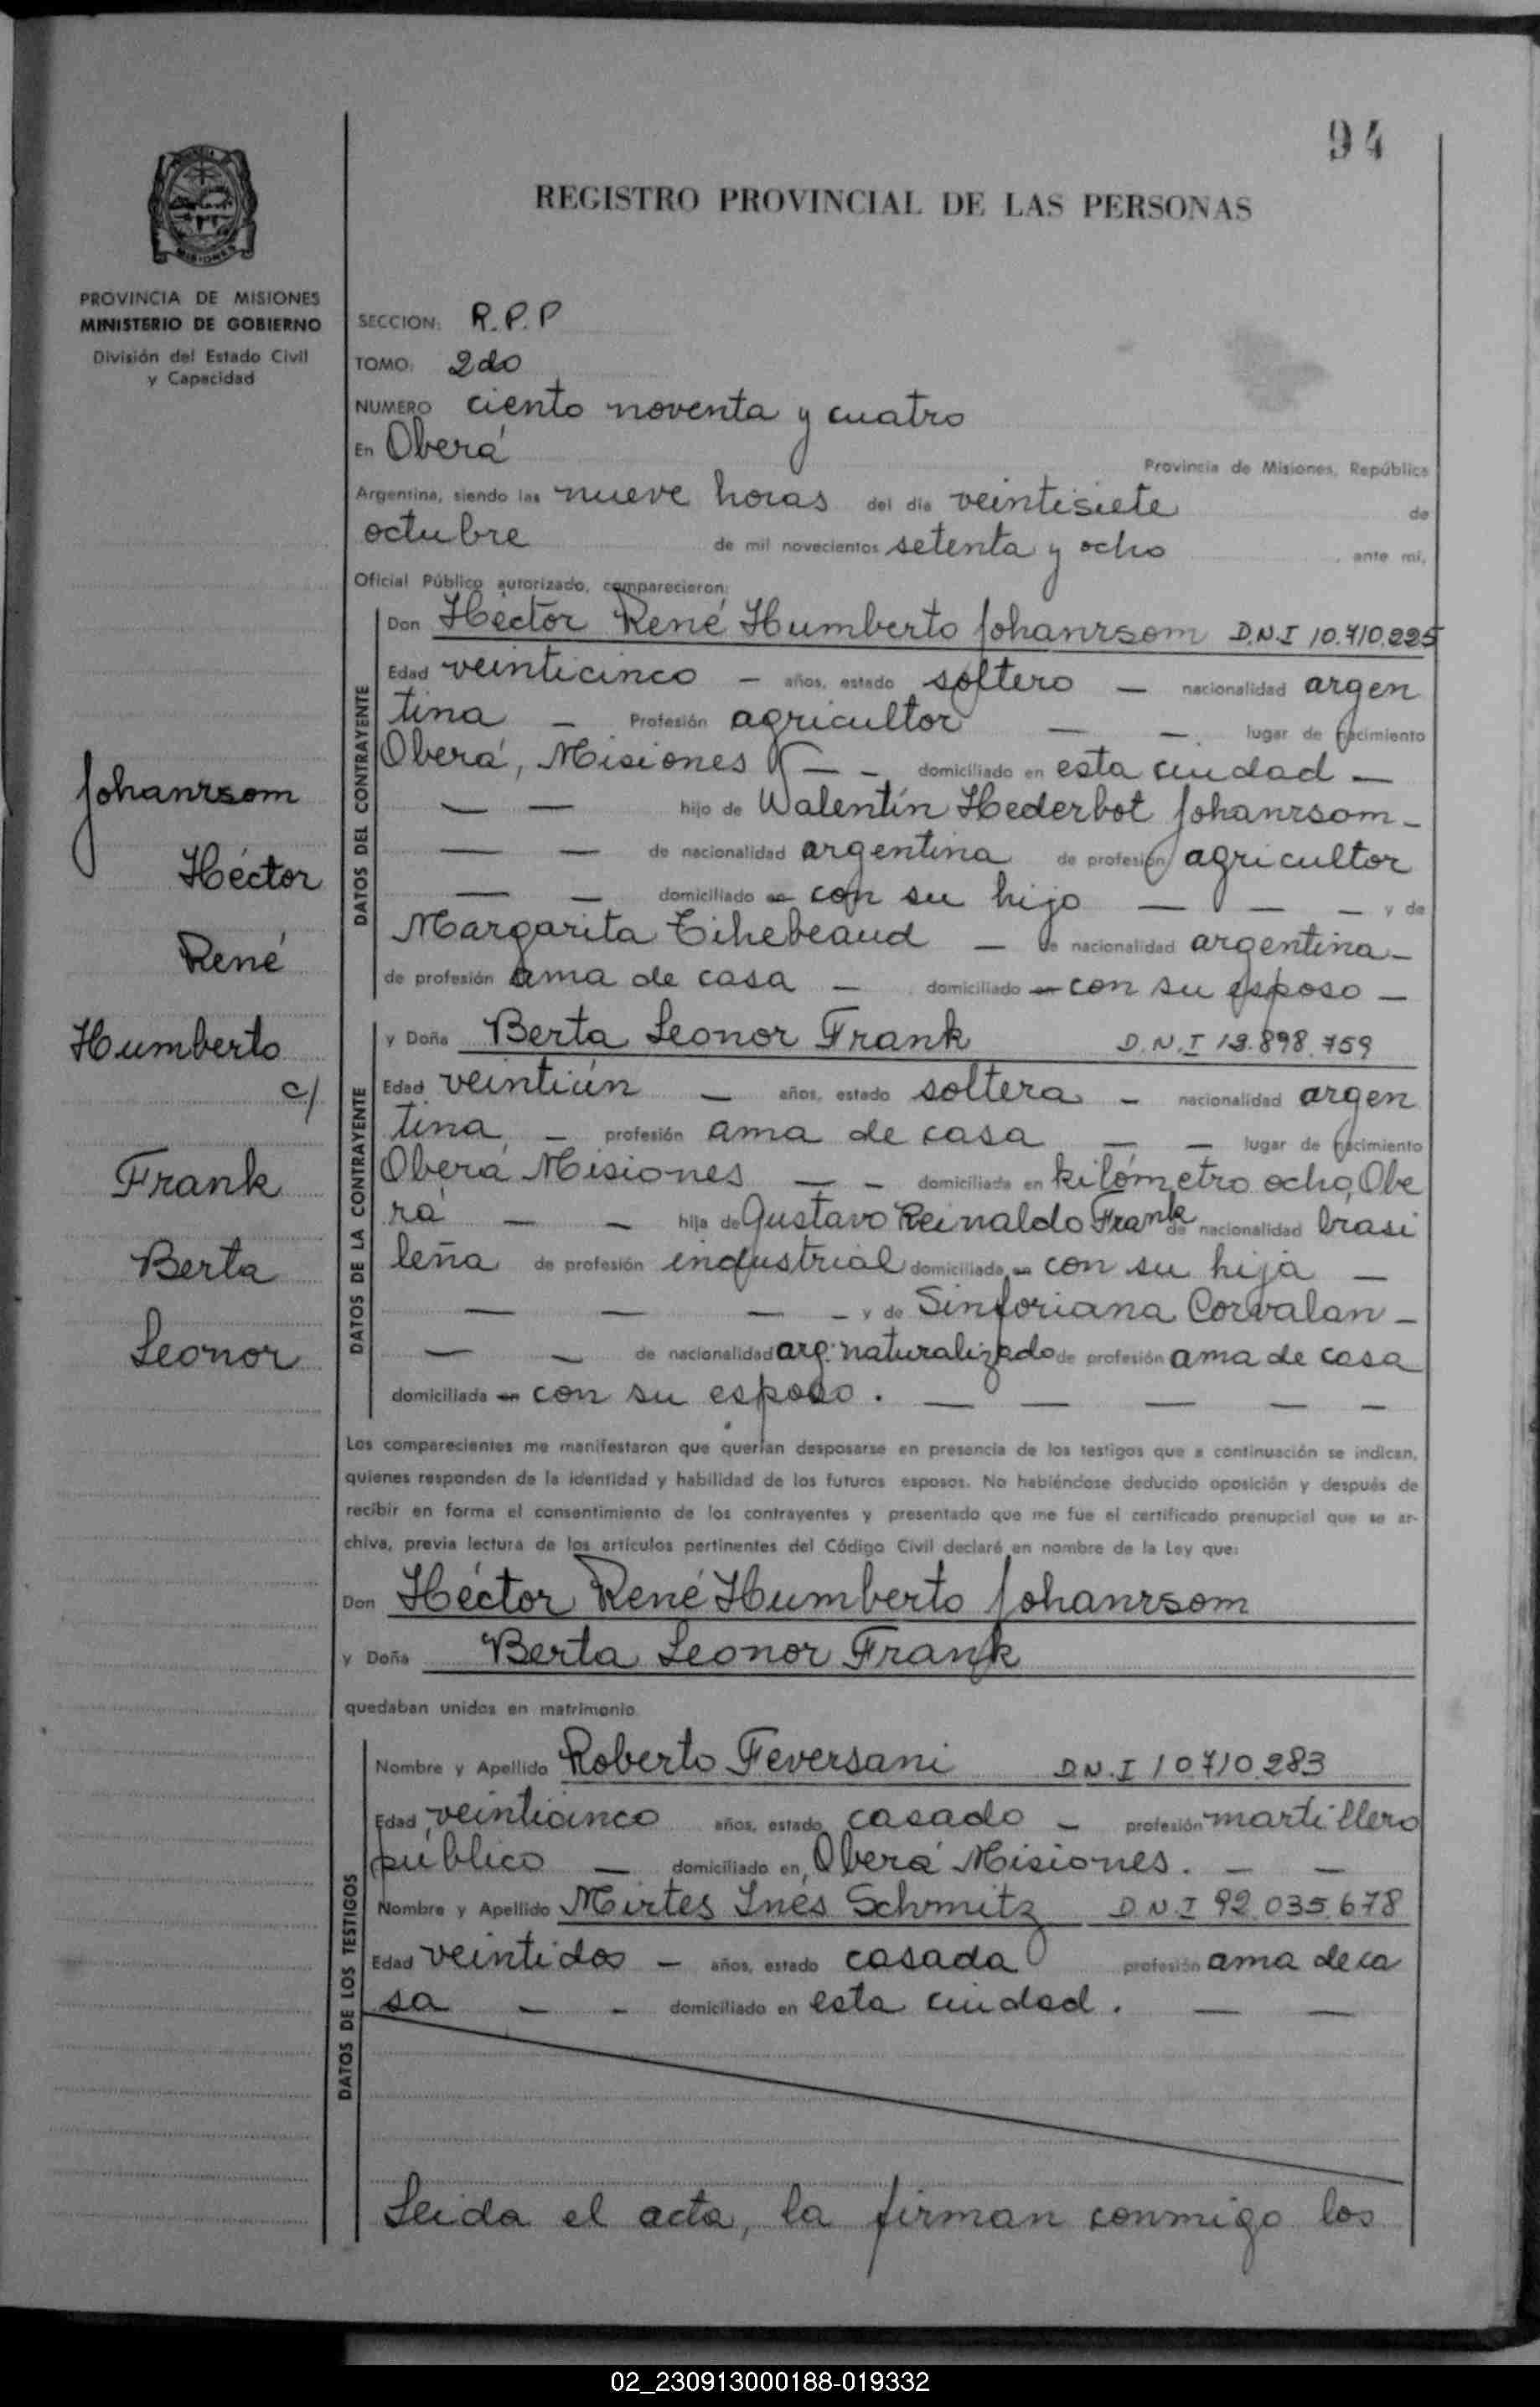 94
REGISTRO PROVINCIAL DE LAS PERSONAS
MISIONES
PROVINCIA DE MISIONES
MINISTERIO DE GOBIERNO
División del Estado Civil
y Capacidad
Johanrsom
Héctor
René
Humberto
c/
Frank
Berta
Leonor
SECCION: R.P.P
TOMO: 2do
NUMERO ciento noventa y cuatro
En Oberá Provincia de Misiones, República
Argentina, siendo las nueve horas del día veintisiete de
octubre de mil novecientos setenta y ocho, ante mí,
Oficial Público autorizado, comparecieron:
DATOS DEL CONTRAYENTE
Don Héctor René Humberto Johanrsom D.N.I 10.710.225
Edad veinticinco — años, estado soltero — nacionalidad argen
tina — Profesión agricultor — — lugar de nacimiento
Oberá, Misiones — — domiciliado en esta ciudad —
— — hijo de Walentín Hederbot Johanrsom —
— — de nacionalidad argentina de profesión agricultor
— — domiciliado en con su hijo — — — y de
Margarita Tihebeaud — de nacionalidad argentina —
de profesión ama de casa — domiciliado en con su esposo —
DATOS DE LA CONTRAYENTE
y Doña Berta Leonor Frank D.N.I 13.898.759
Edad veintiún — años, estado soltera — nacionalidad argen
tina, — profesión ama de casa — — lugar de nacimiento
Oberá Misiones — — domiciliada en kilómetro ocho, Obe
rá — — hija de Gustavo Reinaldo Frank de nacionalidad brasi
leña de profesión industrial domiciliado en con su hija —
— — — — y de Sinforiana Corvalan —
— — de nacionalidad arg. naturalizado de profesión ama de casa
domiciliada en con su esposo. — — — — —
Los comparecientes me manifestaron que querían desposarse en presencia de los testigos que a continuación se indican,
quienes responden de la identidad y habilidad de los futuros esposos. No habiéndose deducido oposición y después de
recibir en forma el consentimiento de los contrayentes y presentado que me fue el certificado prenupcial que se ar-
chiva, previa lectura de los artículos pertinentes del Código Civil declaré en nombre de la Ley que:
Don Héctor René Humberto Johanrsom
y Doña Berta Leonor Frank
quedaban unidos en matrimonio
DATOS DE LOS TESTIGOS
Nombre y Apellido Roberto Feversani D.N.I 10.710.283
Edad veinticinco años, estado casado — profesión martillero
público — domiciliado en Oberá Misiones. — —
Nombre y Apellido Mirtes Inés Schmitz D.N.I 92.035.678
Edad veintidos — años, estado casada profesión ama de ca
sa — — domiciliado en esta ciudad. — —
Leida el acta, la firman conmigo los
02_230913000188-019332